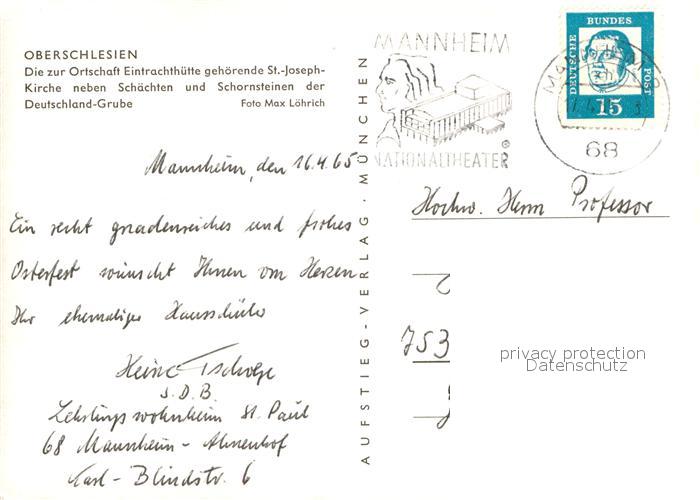 OBERSCHLESIEN
Die zur Ortschaft Eintrachthütte gehörende St.-Joseph-
Kirche neben Schächten und Schornsteinen der
Deutschland-Grube Foto Max Löhrich
Mannheim, den 16.4.65
Ein recht gnadenreiches und frohes
Osterfest wünscht Ihnen von Herzen
Ihr ehemaliger Hausschüler
Heinz
S.D.B.
Lehrlingswohnheim St. Paul
68 Mannheim - Almenhof
Karl-Blindstr. 6
AUFSTIEG-VERLAG · MÜNCHEN
MANNHEIM
NATIONALTHEATER
DEUTSCHE
BUNDES
POST
15
68
Hochw. Herrn Professor
753
privacy protection
Datenschutz